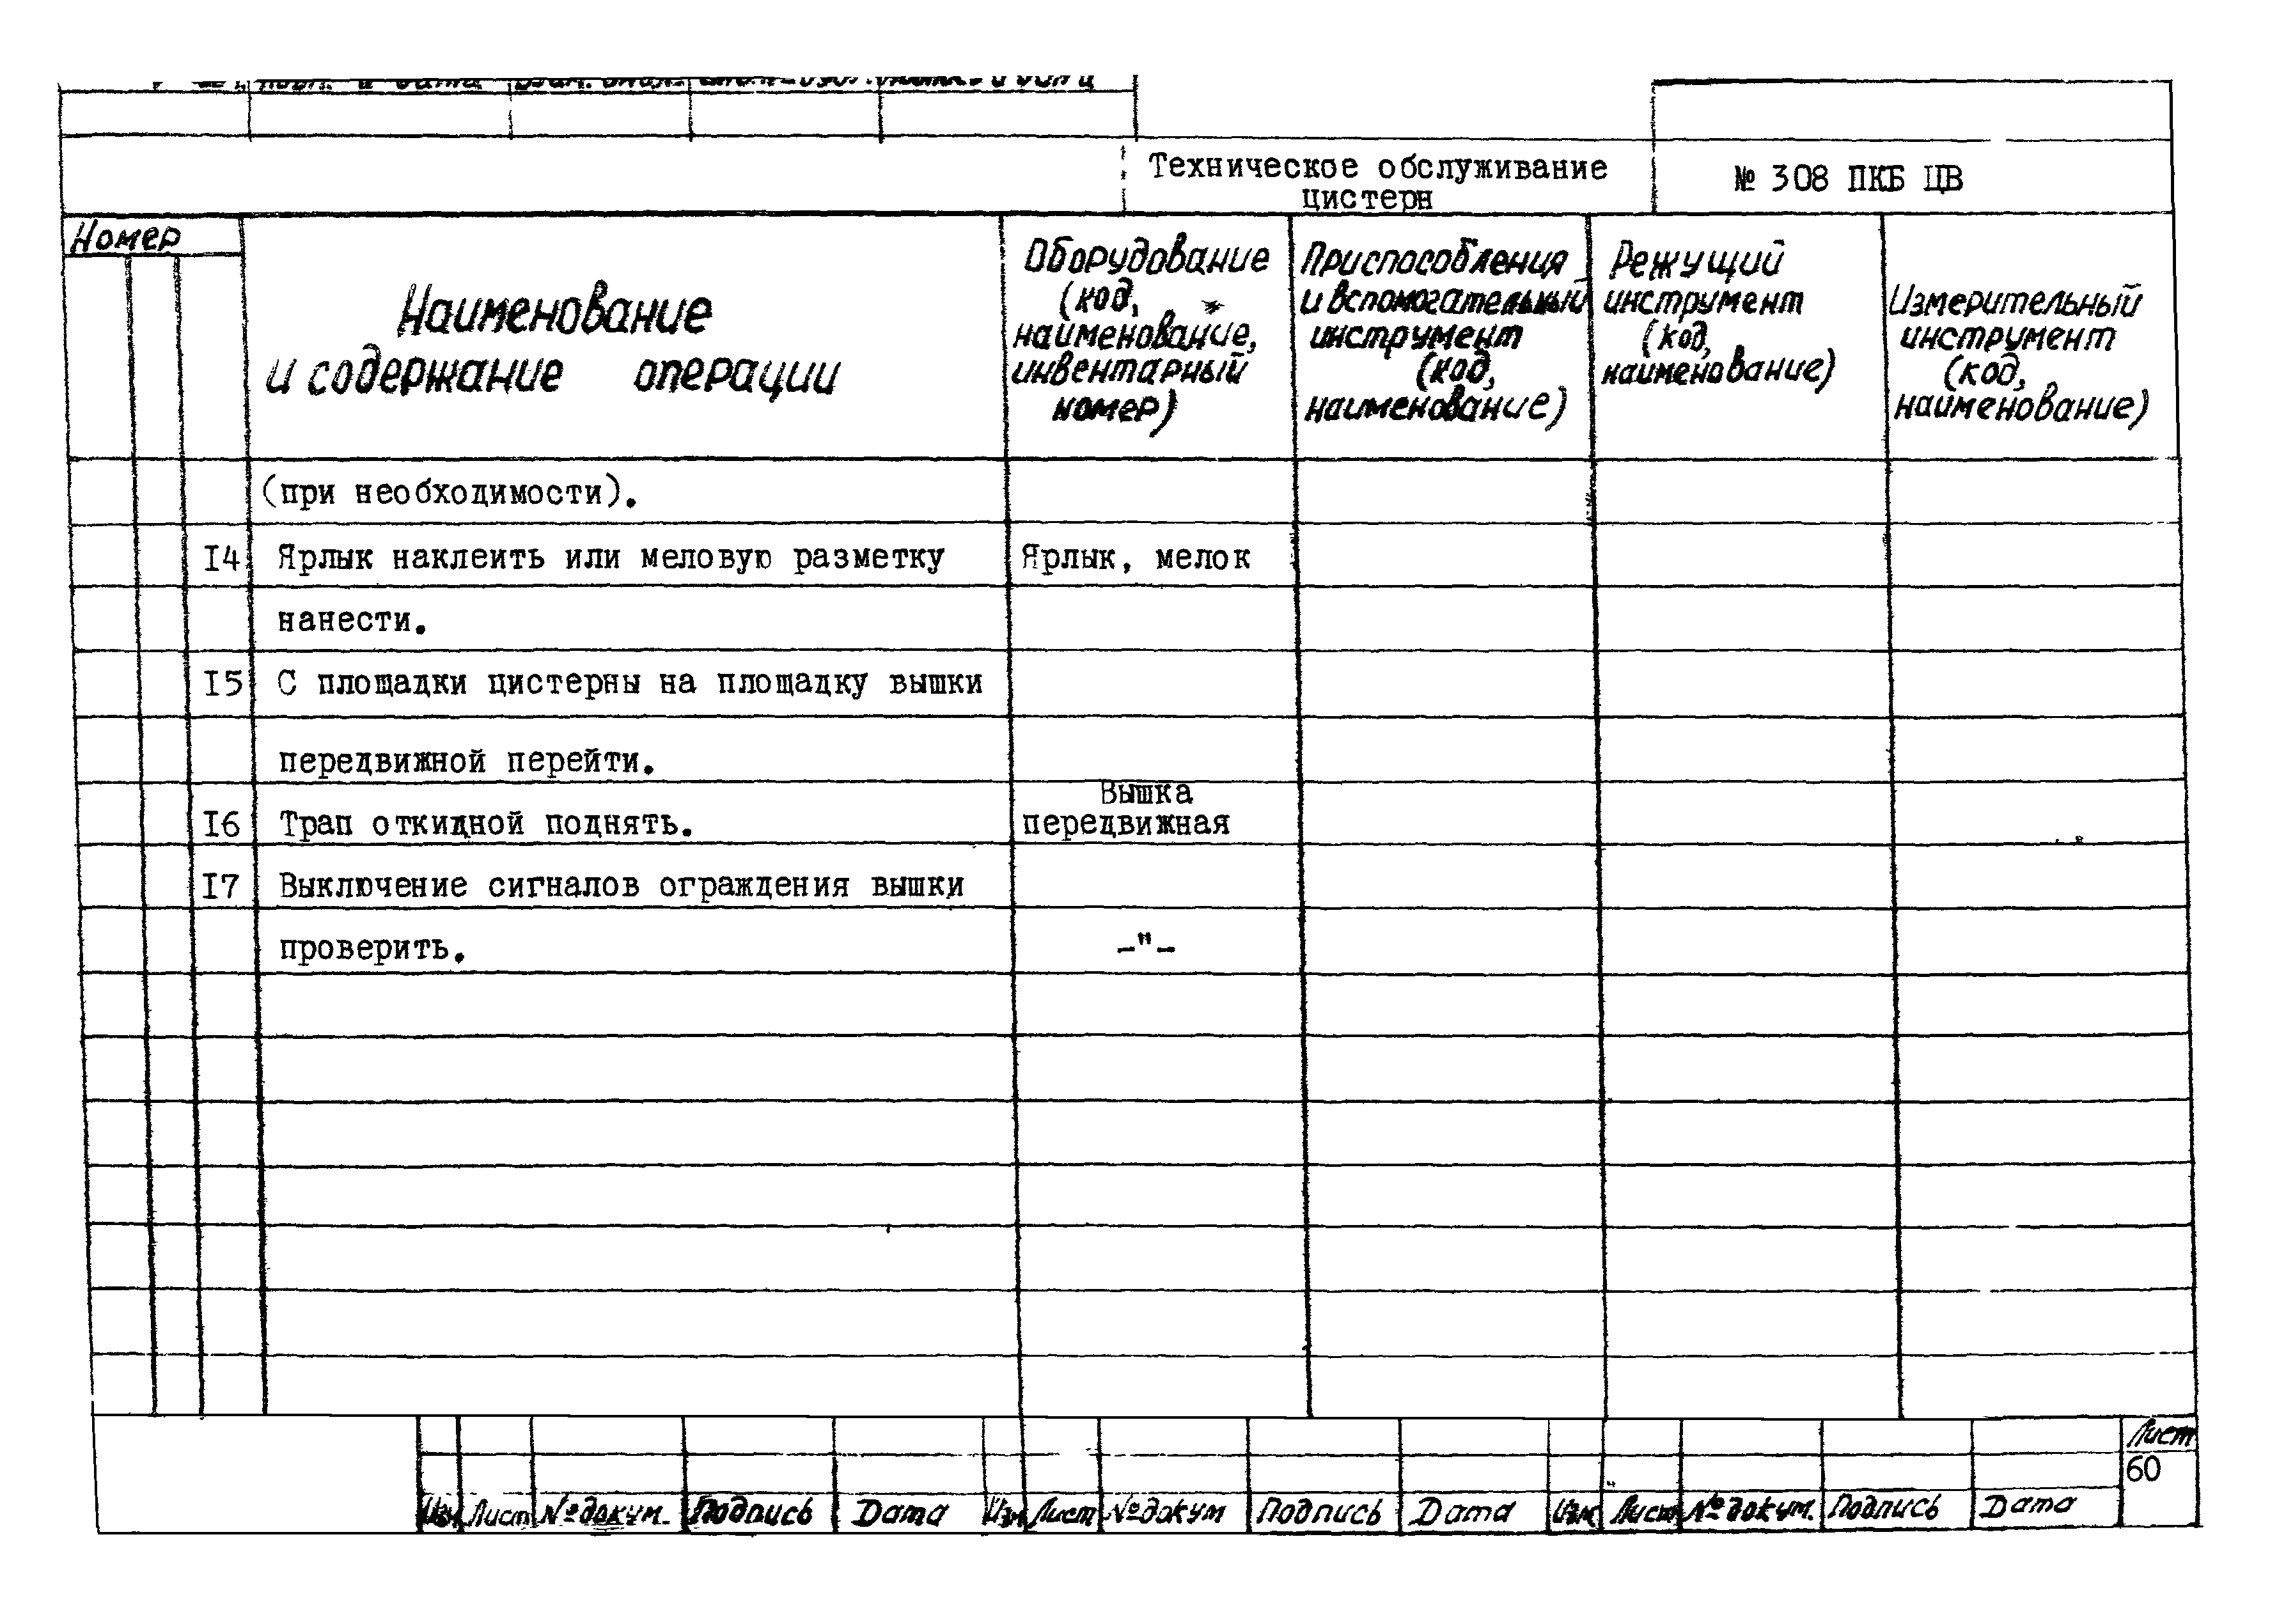 Техническое обслуживание
цистерн
№ 308 ПКБ ЦВ
Номер
Наименование
и содержание операции
Оборудование
(код,
наименование,
инвентарный
номер)
Приспособления
и вспомогательный
инструмент
(код,
наименование)
Режущий
инструмент
(код,
наименование)
Измерительный
инструмент
(код,
наименование)
(при необходимости).
I4 Ярлык наклеить или меловую разметку Ярлык, мелок
нанести.
I5 С площадки цистерны на площадку вышки
передвижной перейти.
Вышка
I6 Трап откидной поднять. передвижная
I7 Выключение сигналов ограждения вышки
проверить. -"-
Лист
60
Изм Лист № докум. Подпись Дата Изм Лист № докум Подпись Дата Изм Лист № докум. Подпись Дата